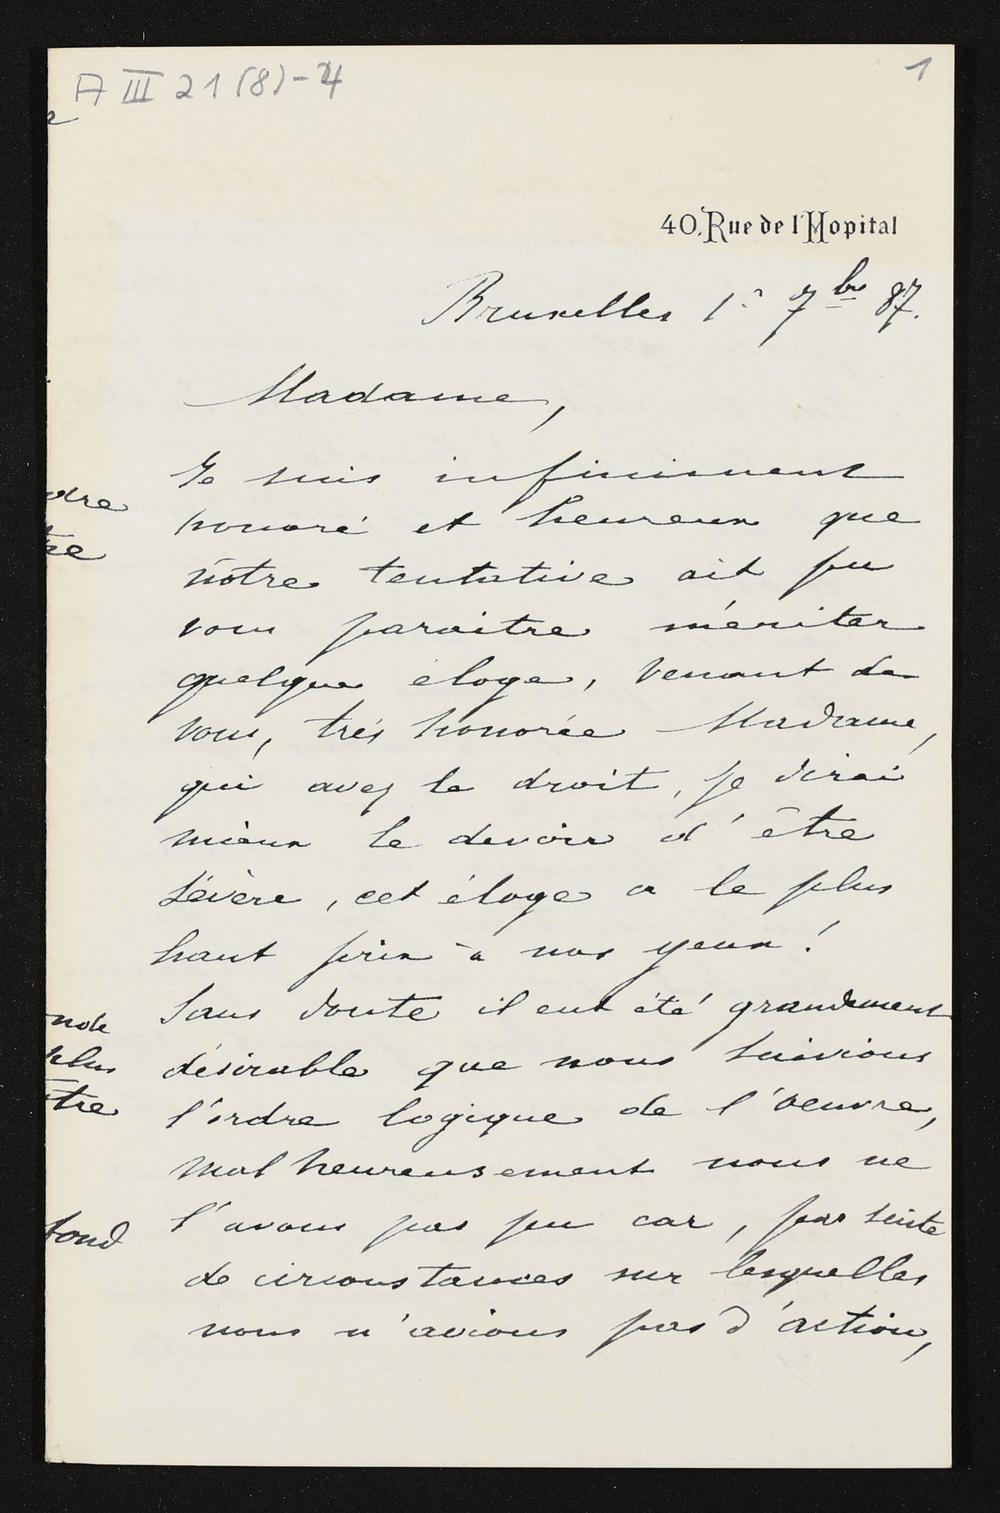 A III 21 (8)-4
1
40, Rue de l'Hopital
Bruxelles 1r 7bre 87.
Madame,
Je suis infiniment
honoré et heureux que
notre tentative ait pu
vous paraitre mériter
quelque éloge, venant de
vous, très honorée Madame,
qui avez le droit, je dirai
mieux le devoir d'être
sévère, cet éloge a le plus
haut prix à nos yeux!
Sans doute il eut été grandement
désirable que nous suivions
l'ordre logique de l'oeuvre,
malheureusement nous ne
l'avons pas pu car, par suite
de circonstances sur lesquelles
nous n'avions pas d'action,
dre
tre
nde
plus
tre
fond